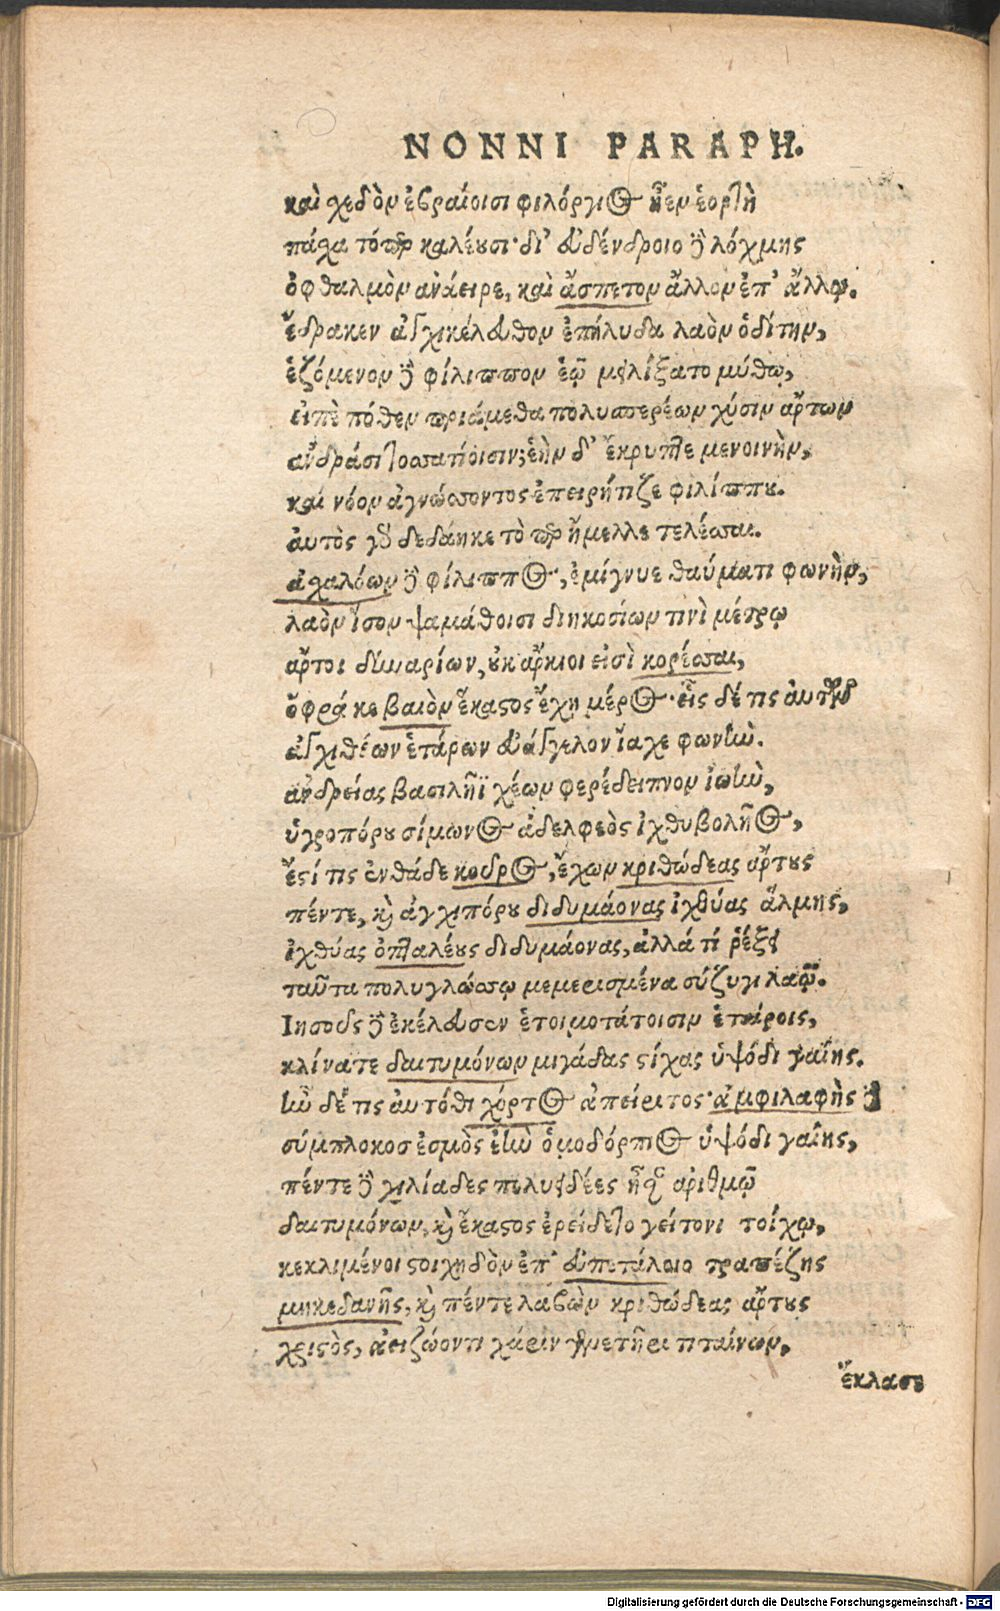 NONNI PARAPH.
καὶ σχεδὸν ἑβραίοισι φιλόργιος ἦεν ἑορτὴ
πάσχα τόπερ καλέουσι· δι' εὐδένδροιο δὲ λόχμης
ὀφθαλμὸν ἀνάειρε, καὶ ἄσπετον ἄλλον ἐπ' ἄλλῳ.
ἔδρακεν ἀγχικέλευθον ἐπήλυδα λαὸν ὁδίτην,
ἑζόμενον δὲ φίλιππον ἑῷ μειλίξατο μύθῳ,
εἰπὲ πόθεν πριάμεθα πολυσπερέων χύσιν ἄρτων
ἀνδράσι τοσσατίοισιν; ἑὴν δ' ἔκρυπτε μενοινὴν,
καὶ νόον ἀγνώσσοντος ἐπειρήτιζε φιλίππου.
αὐτὸς γὰρ δεδάηκε τὸ περ ἤμελλε τελέσσαι.
ἀσχαλόων δὲ φίλιππος, ἐμίγνυε θαύματι φωνὴν,
λαὸν ἴσον ψαμάθοισι διηκοσίων τινὶ μέτρῳ
ἄρτοι δηναρίων, οὐκ ἄρκιοι εἰσὶ κορέσσαι,
ὄφρά κε βαιὸν ἕκαστος ἔχῃ μέρος· εἷς δέ τις αὐτοῦ
ἀγχιθέων ἑτάρων εὐάγγελον ἴαχε φωνήν.
ἀνδρείας βασιλῆϊ χέων φερέδειπνον ἰωήν,
ὑγροπόρου σίμωνος ἀδελφεὸς ἰχθυβολῆος,
ἔστί τις ἐνθάδε κοῦρος, ἔχων κριθώδεας ἄρτους
πέντε, καὶ ἀγχιπόρου διδυμάονας ἰχθύας ἅλμης,
ἰχθύας ὀπταλέους διδυμάονας, ἀλλά τί ῥέξει
ταῦτα πολυγλώσσῳ μεμερισμένα σύζυγι λαῷ.
Ιησοῦς δὲ ἐκέλευσεν ἑτοιμοτάτοισιν ἑταίροις,
κλίνατε δαιτυμόνων μιγάδας στίχας ὑψόδι γαίης.
ἦν δέ τις αὐτόθι χόρτος ἀπείριτος· ἀμφιλαφὴς δὲ
σύμπλοκος ἐσμὸς ἔην ὁμοδόρπιος ὑψόδι γαίης,
πέντε δὲ χιλίαδες πολυειδέες ἦσαν ἀριθμῷ
δαιτυμόνων, καὶ ἕκαστος ἐρείδετο γείτονι τοίχῳ,
κεκλιμένοι στοιχηδὸν ἐπ' εὐπετάλοιο τραπέζης
μηκεδανῆς, καὶ πέντε λαβὼν κριθώδεας ἄρτους
χριστὸς, ἀειζώοντι χάριν γενετῆρι τιταίνων,
ἔκλασε
Digitalisierung gefördert durch die Deutsche Forschungsgemeinschaft - DFG